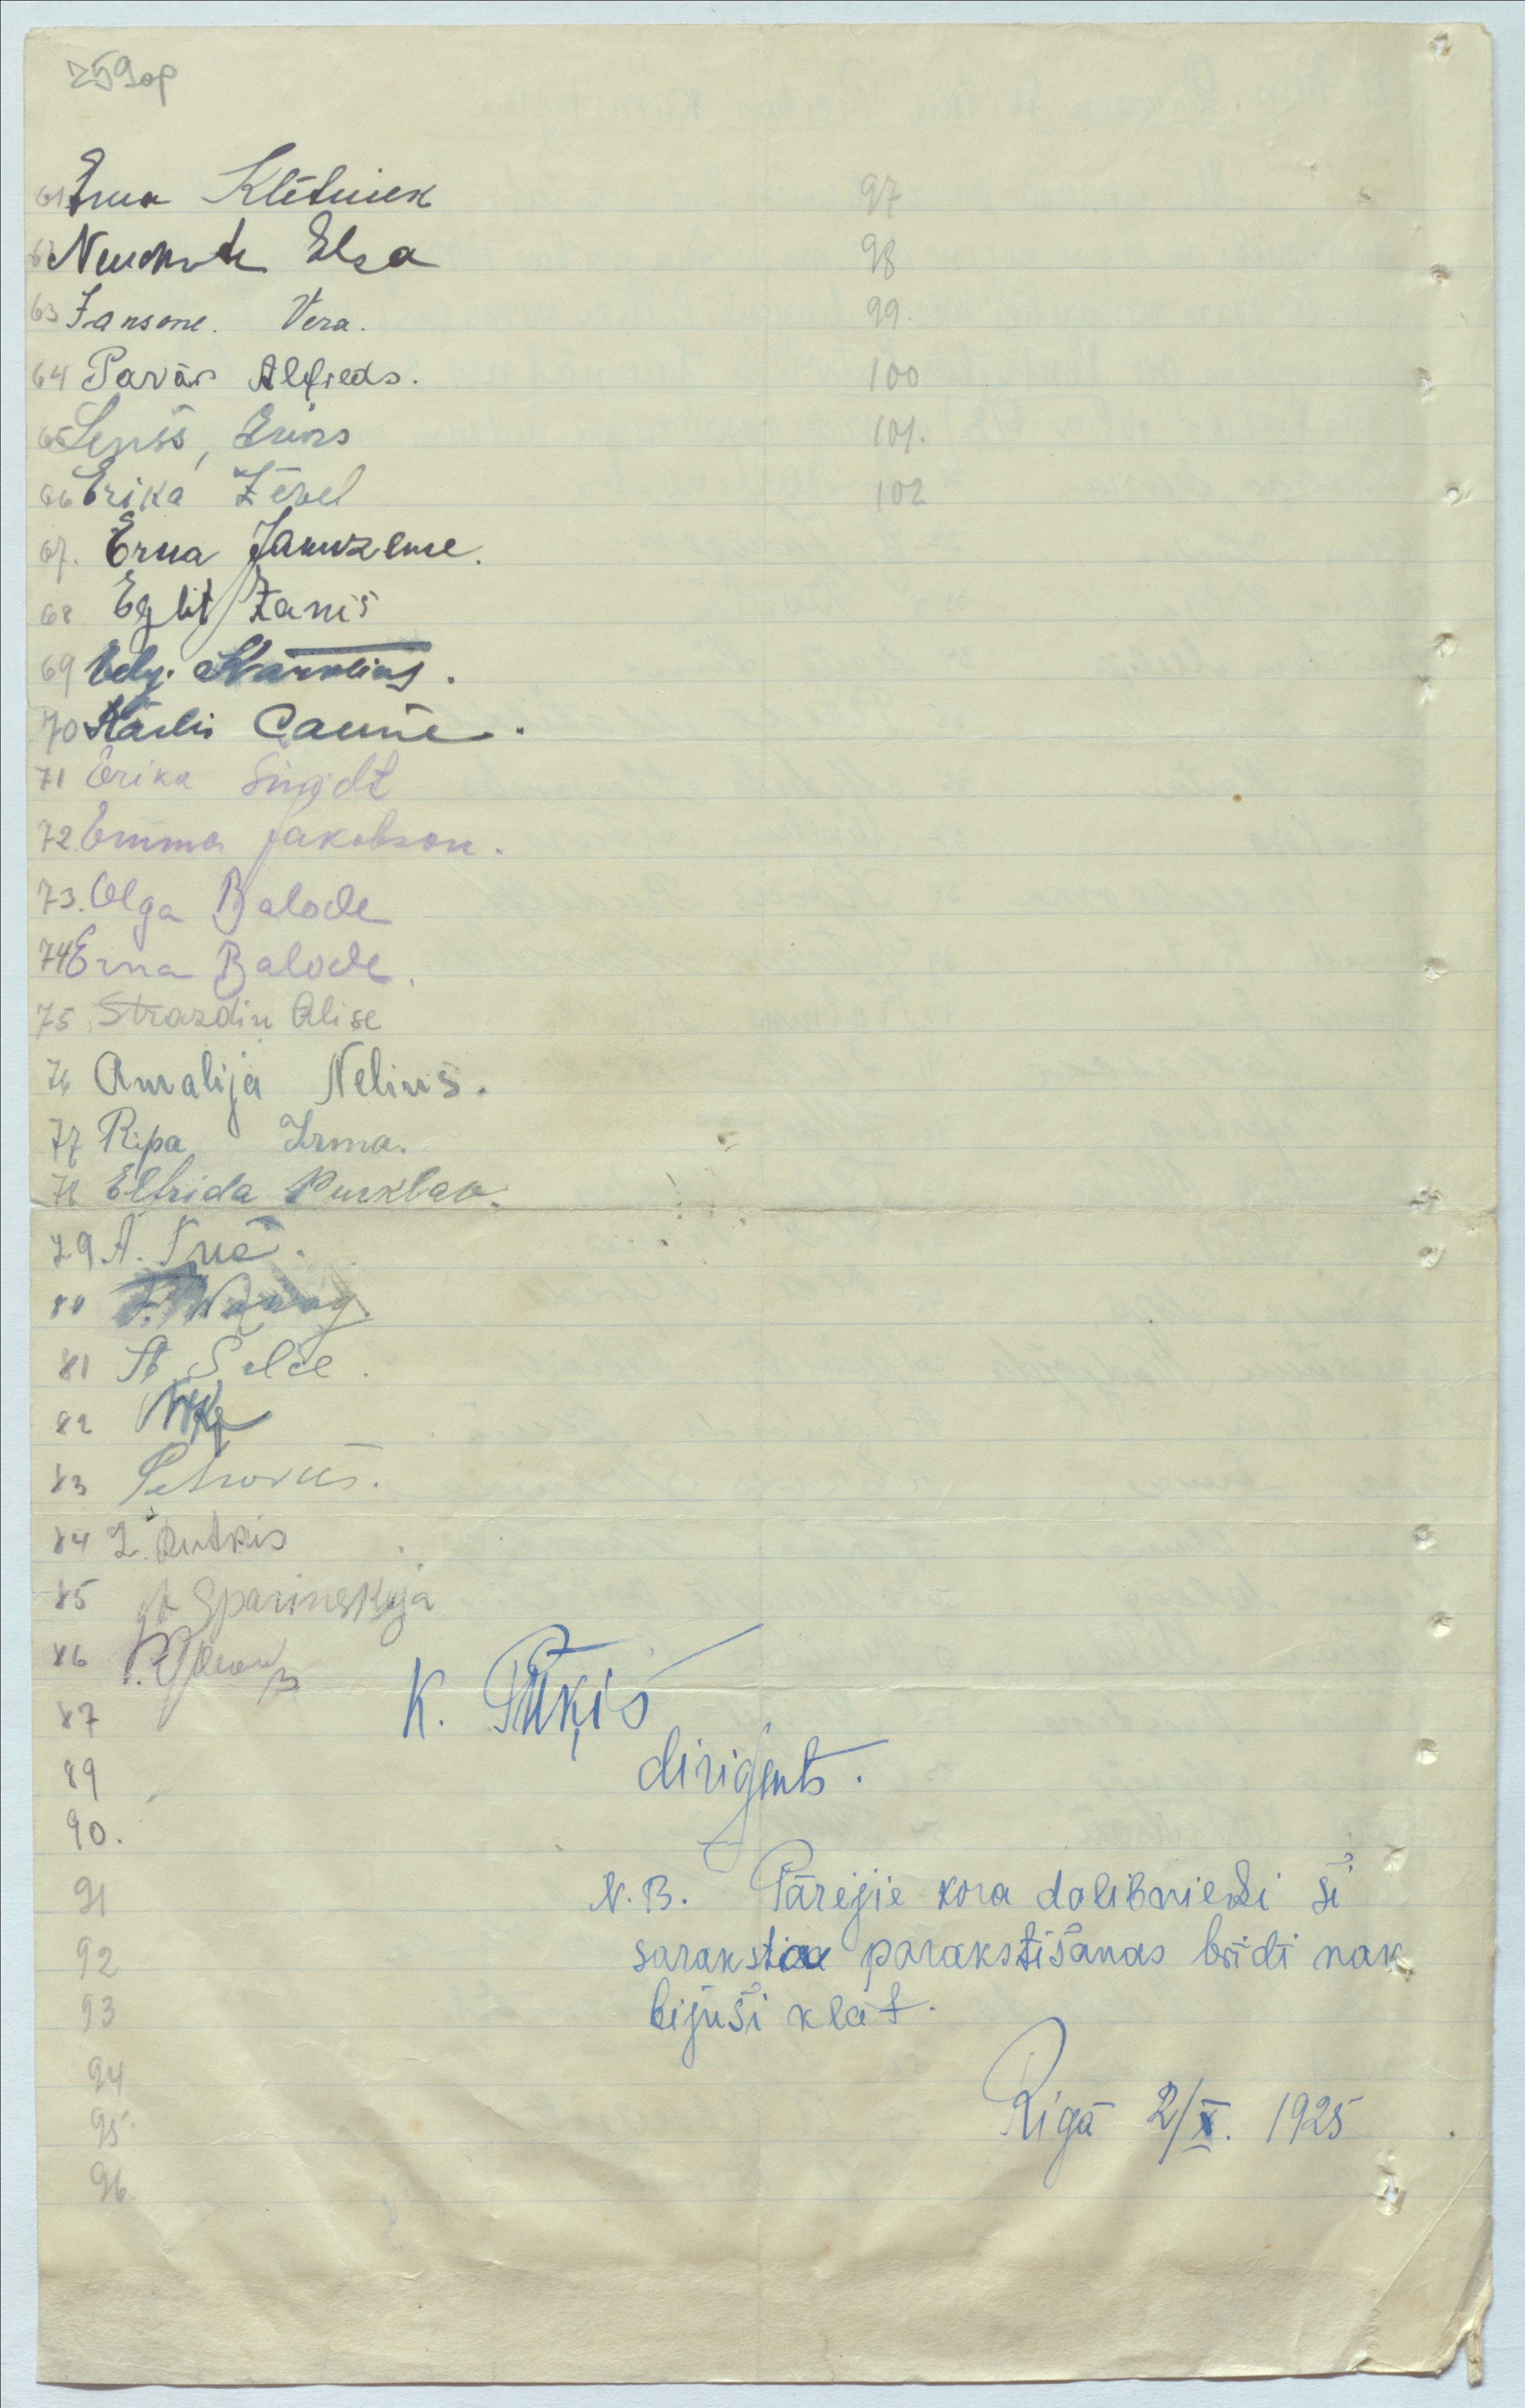 259op
61 Erna Klētniek
62 Elsa
63 Jansone. Vera.
64 Pavārs Alfreds.
65 Lepšs,
66 Erika Zēvel
67. Erna Jaunzeme.
68 Eglit Žanis
69
70 Kārlis Caune.
71 Erika Šmidt
72. Emma Jakobson.
73. Olga Balode
74 Erna Balode.
75. Strazdin Alise
76 Amalija Nelius.
77 Ripa Irma.
78 Elfrida Purklav.
79 A.
80
81 A. Selle.
82
83 Petrovics.
84 Z. Rutkis
85 Sparinskaja
86
87
89
90.
91
92
93
94
95.
96
97
98
99.
100
101.
102
K. Pūķis
dirigents.
N.B. Pārejie kora dalibnieki ši
saraksta parakstišanas brīdi nak
bijuši klāt.
Rigā 2/X. 1925